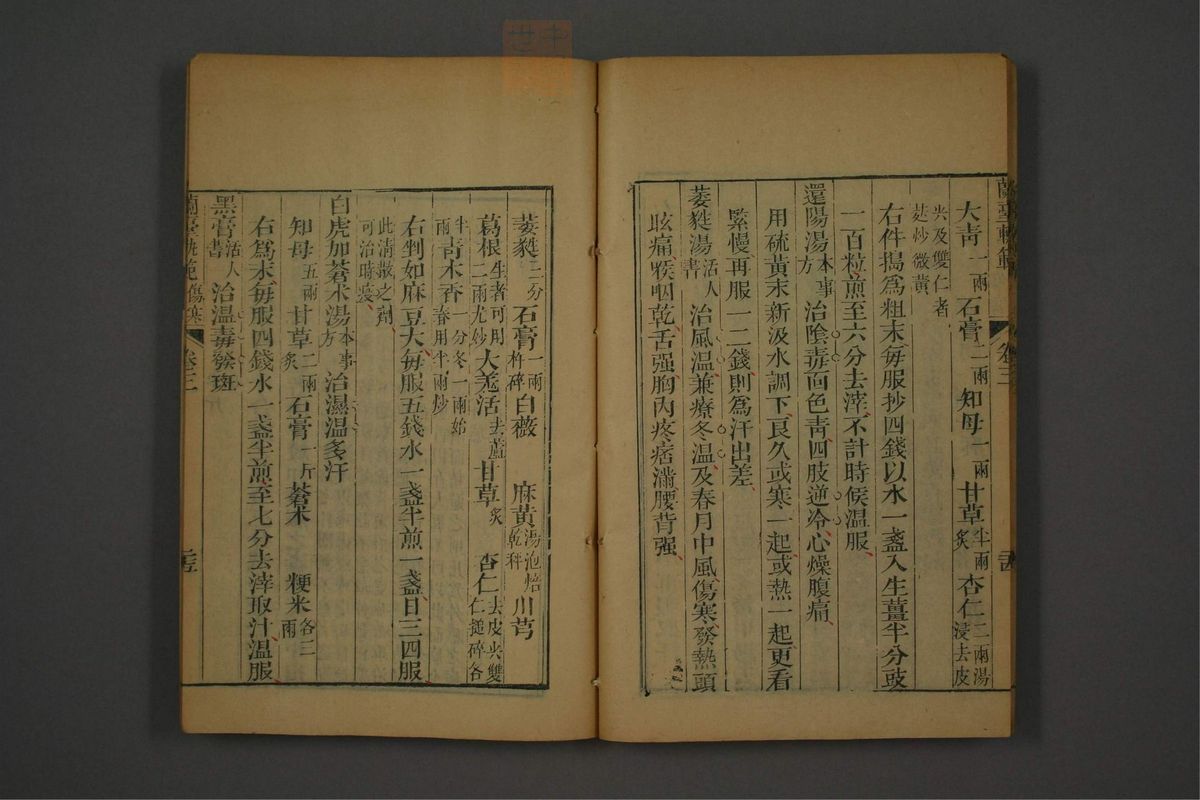 蘭臺軌範
卷三
大青一兩 石膏二兩 知母一兩 甘草半兩炙 杏仁二兩湯浸去皮
尖及雙仁者
麩炒微黃
右件搗爲粗末毎服抄四錢以水一盞入生薑半分豉
一百粒煎至六分去滓不計時候温服
還陽湯本事方 治陰毒面色青四肢逆冷心燥腹痛
用硫黃末新汲水調下良久或寒一起或熱一起更看
緊慢再服一二錢則爲汗出差
萎蕤湯活人書 治風温兼療冬温及春月中風傷寒發熱頭
眩痛喉咽乾舌强胸內疼痞滿腰背强
萎蕤三分 石膏一兩杵碎 白薇 麻黃湯泡焙乾秤 川芎
葛根生者可用二兩尤妙 大羗活去蘆 甘草炙 杏仁去皮尖雙仁搥碎各
半兩 青木香一分冬一兩始春用半兩炒
右剉如麻豆大毎服五錢水一盞半煎一盞日三四服
此清散之劑
可治時痰
白虎加蒼术湯本事方 治濕温多汗
知母五兩 甘草二兩炙 石膏一斤 蒼术 粳米各三兩
右爲末毎服四錢水一盞半煎至七分去滓取汁温服
黑膏活人書 治温毒發斑
蘭臺軌範 傷寒
卷三